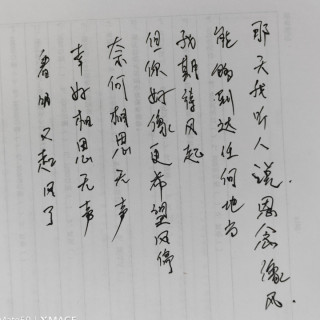 那天我听人说.思念像风.
能够到达任何地方
我期待风起
但你好像更希望风停
奈何相思无声
幸好相思无声
又起风了
XMAGE